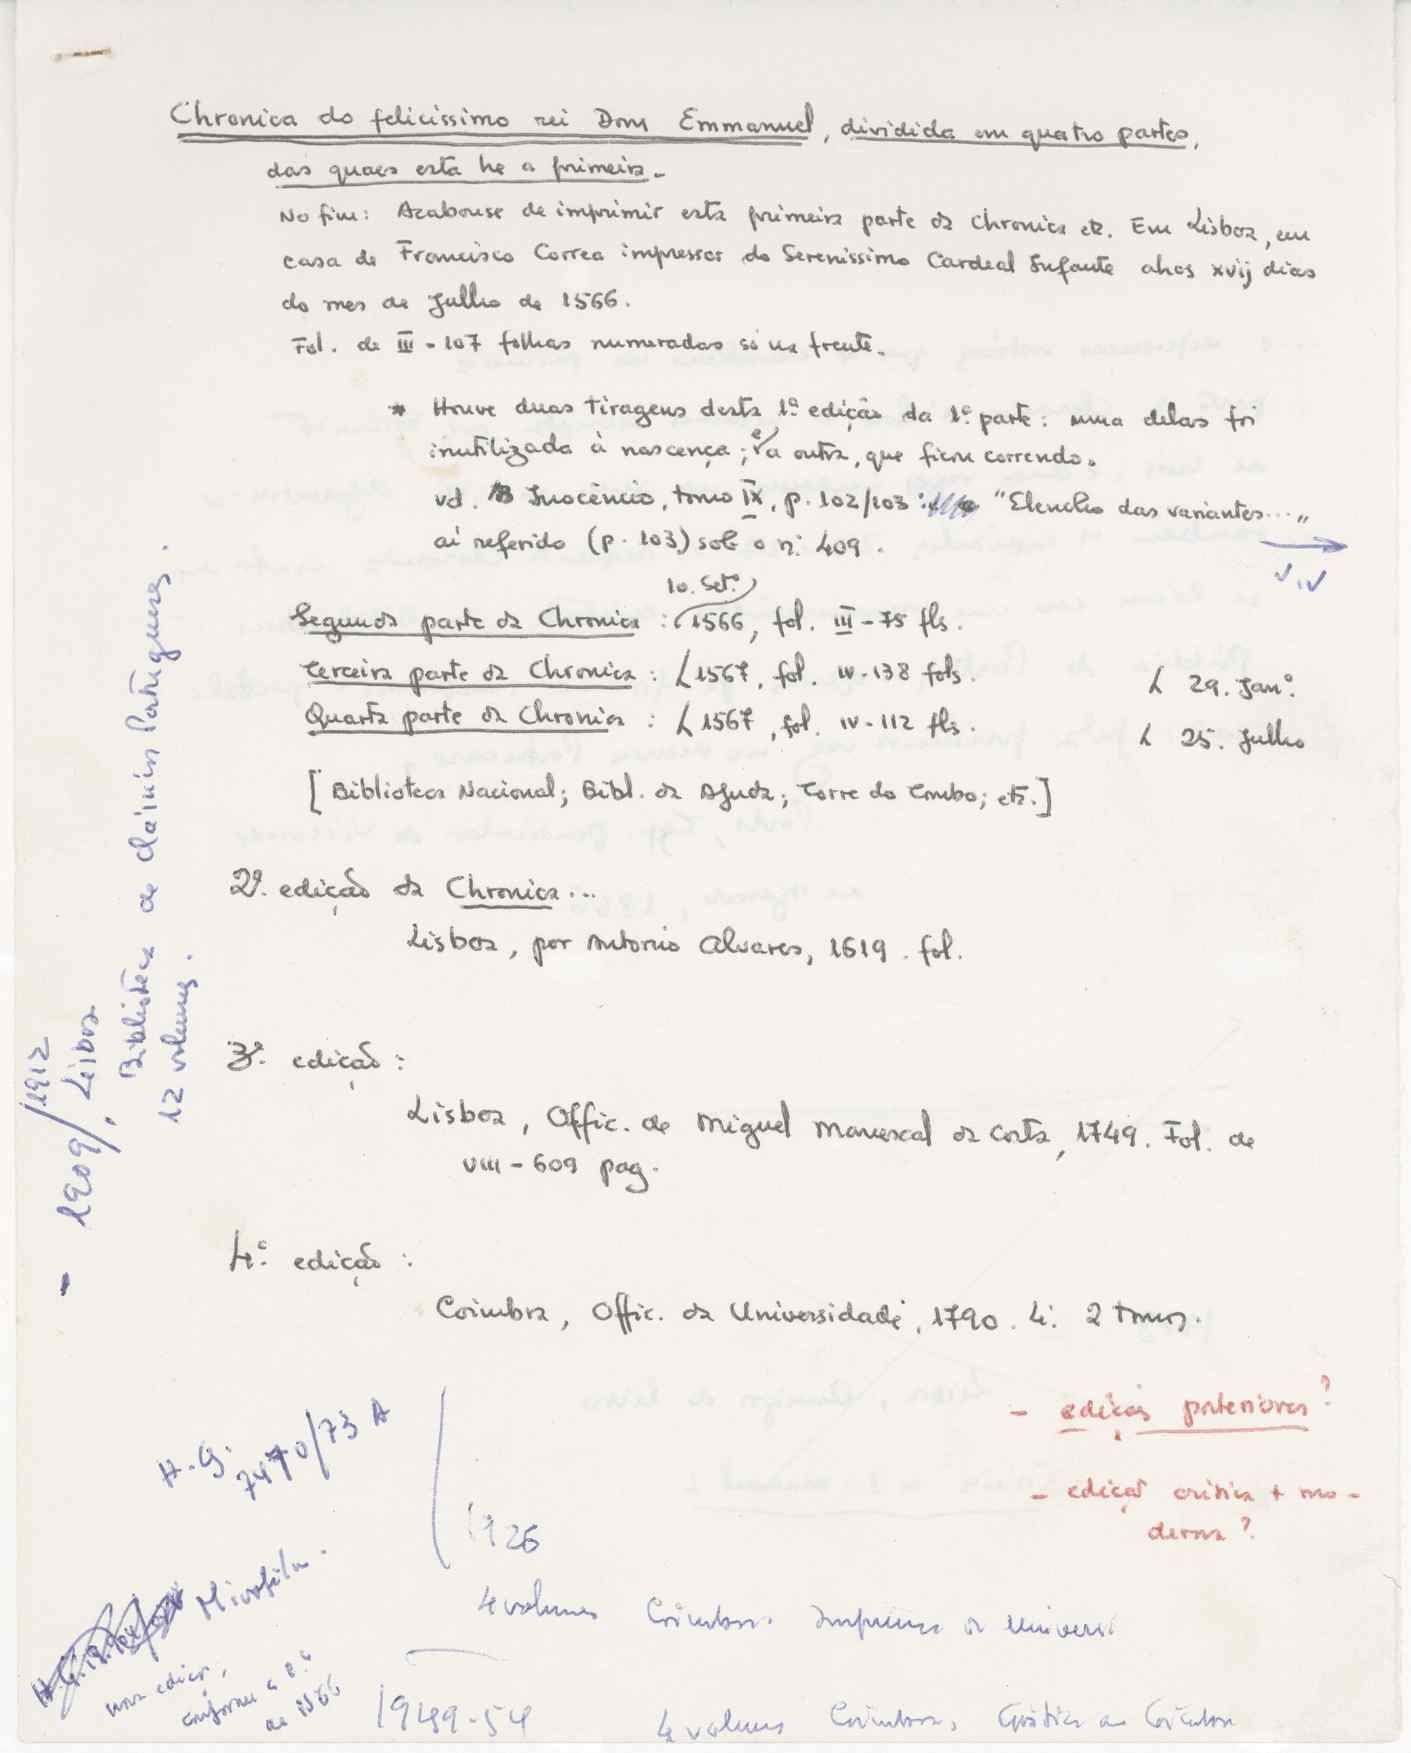 Chronica do felicissimo rei Dom Emmanuel, dividida em quatro partes,
das quaes esta he a primeira.
No fim: Acabouse de imprimir esta primeira parte da Chronica etc. Em Lisboa, em
casa de Francisco Correa impressor do Serenissimo Cardeal Infante ahos xvij dias
do mes de Julho de 1566.
Fol. de III - 107 folhas numeradas só na frente.
* Houve duas tiragens desta 1ª edição da 1ª parte: uma delas foi
inutilizada à nascença; e a outra, que ficou correndo.
vd. Inocêncio, tomo IX, p. 102/103: "Elencho das variantes..."
aí referido (p. 103) sob o nº 409.
V.V
10. Setº
Segunda parte da Chronica: 1566, fol. III - 75 fls.
Terceira parte da Chronica: L 1567, fol. IV - 138 fols. L 29. Janº.
Quarta parte da Chronica: L 1567, fol. IV - 112 fls. L 25. Julho
[Biblioteca Nacional; Bibl. da Ajuda; Torre do Tombo; etc.]
2ª. edição da Chronica...
Lisboa, por Antonio Alvares, 1619. fol.
3ª. edição:
Lisboa, Offic. de Miguel Manescal da Costa, 1749. Fol. de
VIII - 609 pag.
4ª. edição:
Coimbra, Offic. da Universidade, 1790. 4º. 2 tomos.
- 1909/1912, Lisboa
Biblioteca de Clássicos Portugueses.
12 volumes.
- edições posteriores?
- edição crítica + mo-
derna?
H.G.
7470/73 A
1926
4 volumes Coimbra. Imprensa da Universi
Microfilm.
nova edição,
conforme a
de 1566
1949-54
4 volumes Coimbra,